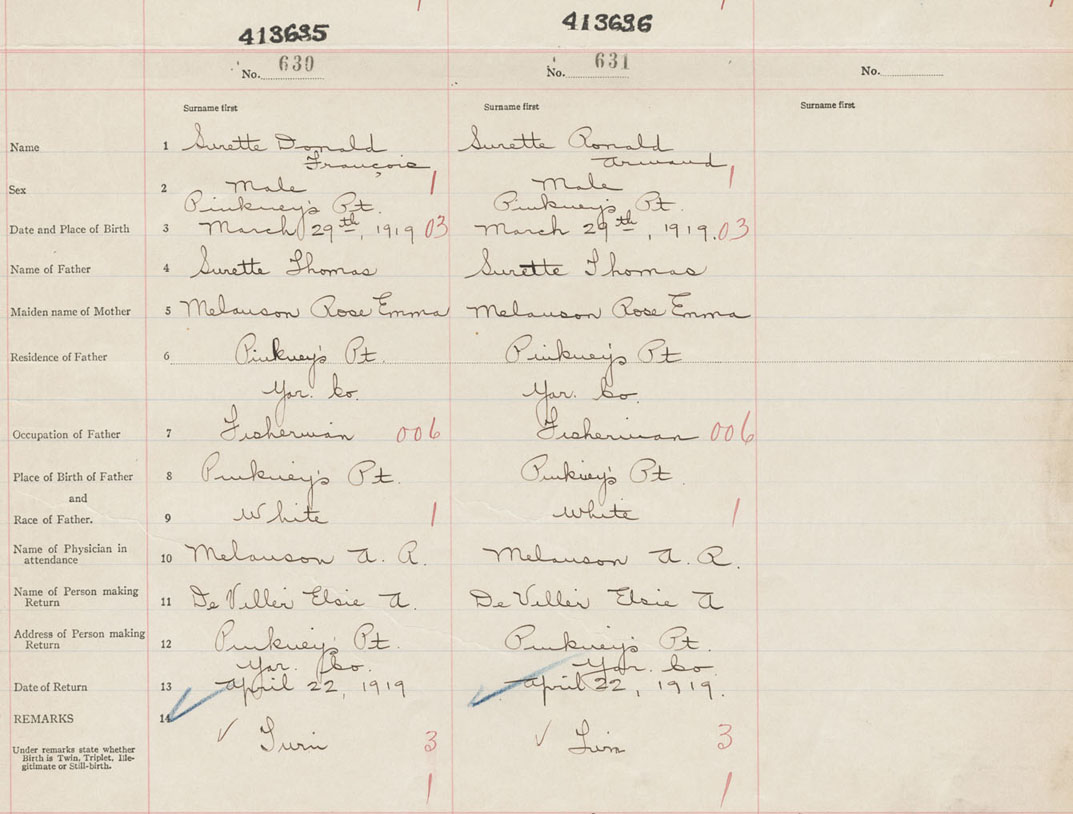 413635 413636
No. 630 No. 631 No.
Surname first Surname first Surname first
Name 1 Surette Donald Surette Ronald
François Armand
1 1
Sex 2 Male Male
Pinkney's Pt. Pinkney's Pt.
Date and Place of Birth 3 March 29th, 1919 03 March 29th, 1919. 03
Name of Father 4 Surette Thomas Surette Thomas
Maiden name of Mother 5 Melanson Rose Emma Melanson Rose Emma
Residence of Father 6 Pinkney's Pt. Pinkney's Pt
Yar. Co. Yar. Co.
Occupation of Father 7 Fisherman 006 Fisherman 006
Place of Birth of Father 8 Pinkney's Pt. Pinkney's Pt.
and
Race of Father. 9 White 1 White 1
Name of Physician in
attendance 10 Melanson A. R. Melanson A. R.
Name of Person making
Return 11 De Viller Elsie A. De Viller Elsie A
Address of Person making
Return 12 Pinkney's Pt. Pinkney's Pt.
Yar. Co. Yar. Co
Date of Return 13 April 22, 1919 April 22, 1919.
REMARKS 14
Twin 3 Twin 3
Under remarks state whether
Birth is Twin, Triplet, Ille-
gitimate or Still-birth.
1 1